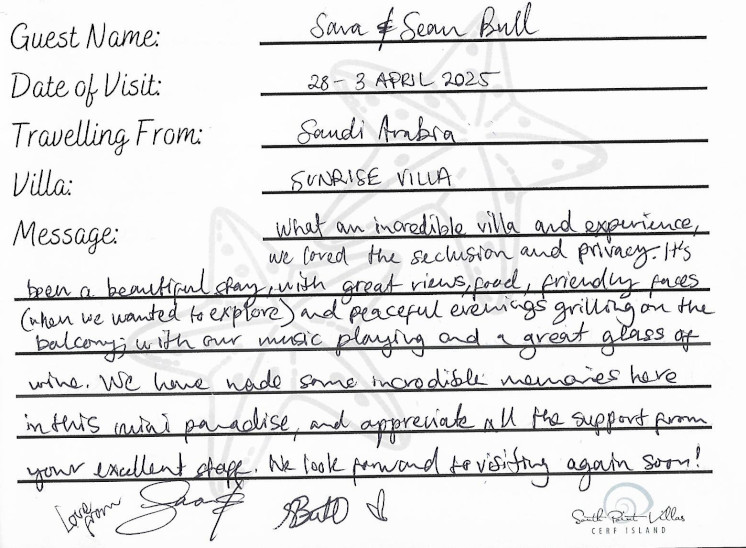 Guest Name: Sara & Sean Bull
Date of Visit: 28 - 3 APRIL 2025
Travelling From: Saudi Arabia
Villa: SUNRISE VILLA
Message: What an incredible villa and experience,
we loved the seclusion and privacy. It's
been a beautiful stay, with great views, food, friendly faces
(when we wanted to explore) and peaceful evenings grilling on the
balcony; with our music playing and a great glass of
wine. We have made some incredible memories here
in this mini paradise, and appreciate all the support from
your excellent staff. We look forward to visiting again soon!
Love from
South Point Villas
CERF ISLAND